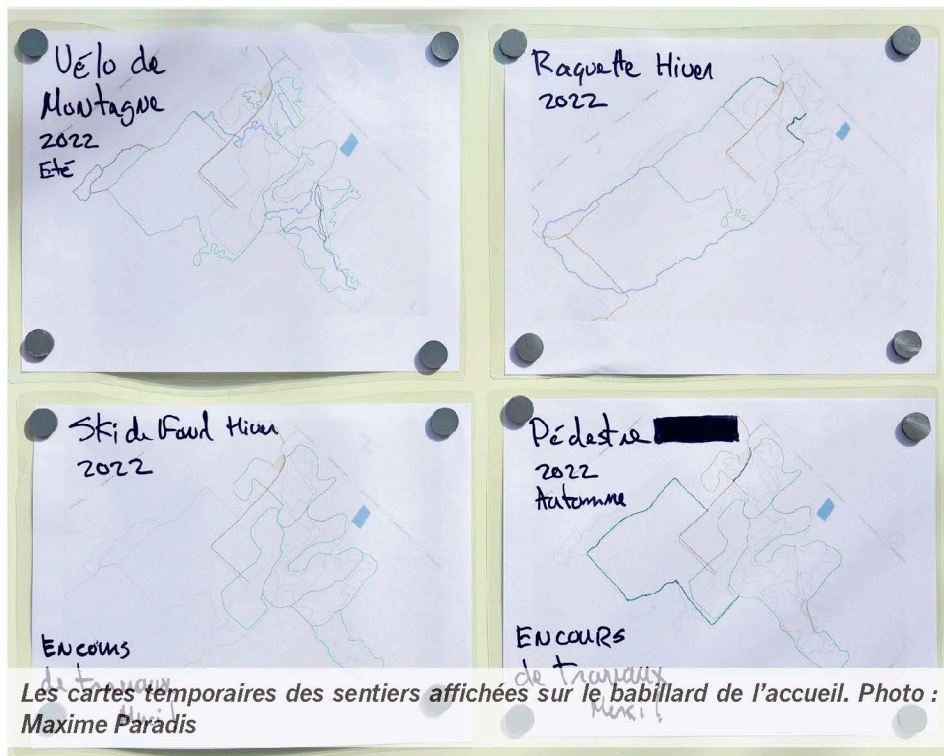 Vélo de
Montagne
2022
Eté
Raquette Hiver
2022
Ski de Fond Hiver
2022
En cours
de travaux
Merci!
Pédestre
2022
Automne
EN COURS
de travaux
Merci!
Les cartes temporaires des sentiers affichées sur le babillard de l'accueil. Photo :
Maxime Paradis